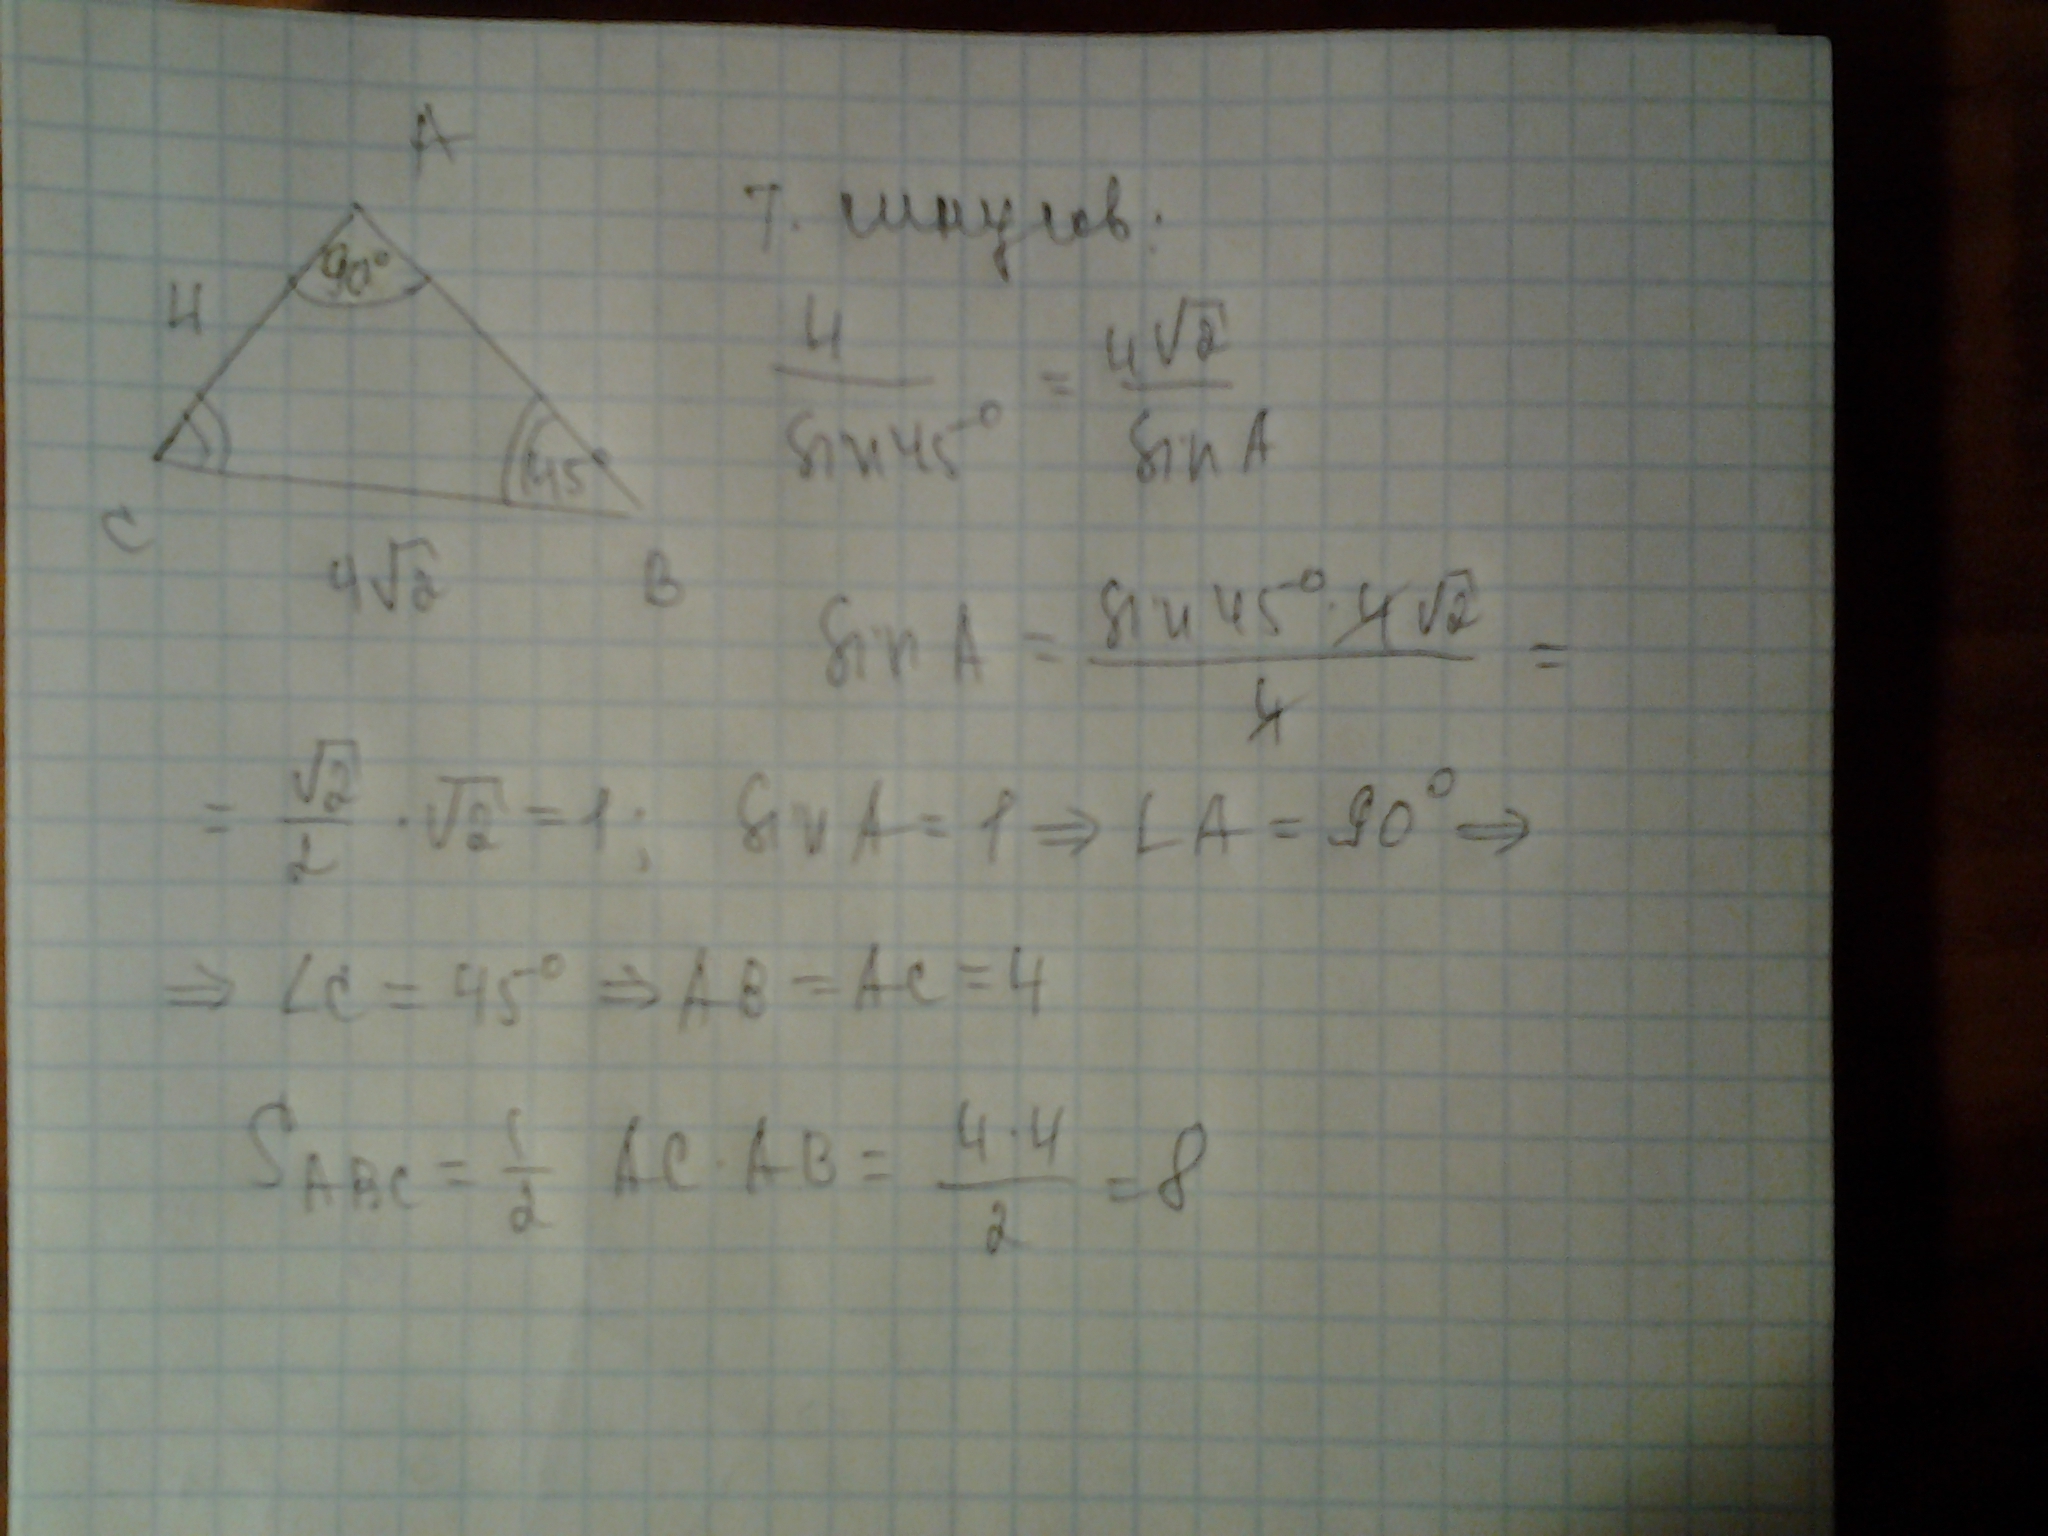 A
90°
4
45°
C
4√2
B
Т. синусов:
4/sin45° = 4√2/sin A
sin A = sin45°·4√2/4 =
= √2/2 · √2 = 1; sin A = 1 ⇒ ∠A = 90° ⇒
⇒ ∠C = 45° ⇒ AB = AC = 4
S ABC = 1/2 AC · AB = 4·4/2 = 8